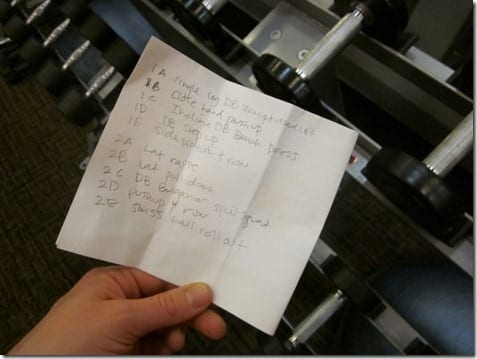 1A single leg DB straight dead lift
1B Close hand push up
1C Incline DB Bench Press
1D DB step up
1E side plank & row
2A Lat raise
2B Lat pull down
2C DB Bulgarian split squat
2D pushup & row
2E swiss ball roll out